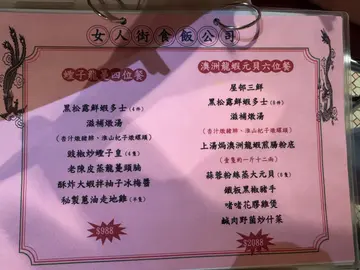 女人街食飯公司
蟶子龍躉四位餐
黑松露鮮蝦多士(4件)
滋補燉湯
(杏汁燉豬肺、淮山杞子燉螺頭)
豉椒炒蟶子皇(4隻)
老陳皮蒸龍躉頭腩
酥炸大蝦拌柚子冰梅醬
秘製蔥油走地雞(半隻)
$988
澳洲龍蝦元貝六位餐
屋邨三鮮
黑松露鮮蝦多士(6件)
滋補燉湯
(杏汁燉豬肺、淮山杞子燉螺頭)
上湯焗澳洲龍蝦煎腸粉底
(壹隻約一斤十二兩)
蒜蓉粉絲蒸大元貝(6隻)
鐵板黑椒豬手
啫啫花膠雞煲
鹹肉野菌炒什菜
$2088